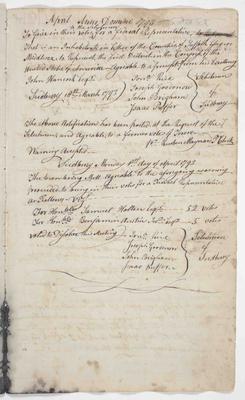 April Anno Domini 1793
in the
To give in their votes for a Federal Representative,
that is an Inhabitant in Either of the Counties of Suffolk Essex or
Middlesex to Represent the first District in the Congress of the
United States of America Agreeable to a precept from his Excellency
John Hancock Esqr
Sudbury 18th March 1793
Jonn Rice
Joseph Goodenow
John Brigham
Isaac Puffer
Selectmen
of
Sudbury
The above Notification has been posted at the Request of the
Selectmen and Agreeable to a former vote of Town
Warning Accepted
Pr Reuben Maynard Clerk
Sudbury Monday 1st day of April 1793
The Town having Mett Agreeable to the aforegoing warning
proceeded to bring in their votes for a Federal Representative
as Follows
For Honble Samuel Holten Esqr 52 votes
For Honble Benjamin Austin Junr Esqr 5 votes
voted to Dissolve this Meeting
Jonn Rice
Joseph Goodenow
John Brigham
Isaac Puffer
Selectmen
of
Sudbury